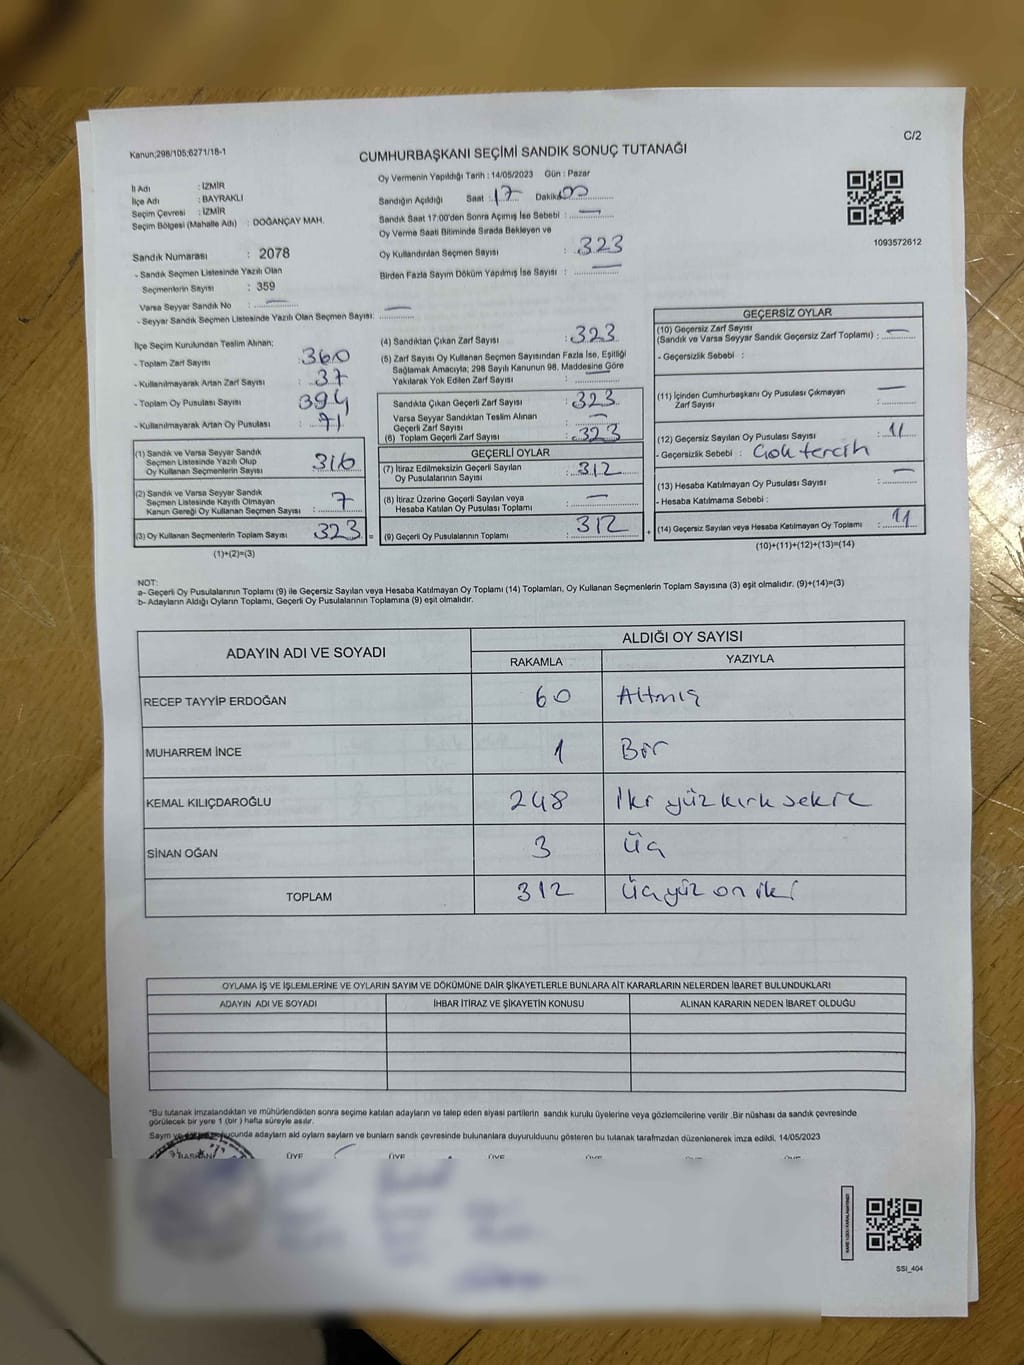 C/2
Kanun;298/105;6271/18-1
CUMHURBAŞKANI SEÇİMİ SANDIK SONUÇ TUTANAĞI
İl Adı : İZMİR
İlçe Adı : BAYRAKLI
Seçim Çevresi : İZMİR
Seçim Bölgesi (Mahalle Adı) : DOĞANÇAY MAH.
Sandık Numarası : 2078
- Sandık Seçmen Listesinde Yazılı Olan
Seçmenlerin Sayısı : 359
Varsa Seyyar Sandık No : —
- Seyyar Sandık Seçmen Listesinde Yazılı Olan Seçmen Sayısı: —
Oy Vermenin Yapıldığı Tarih : 14/05/2023 Gün : Pazar
Sandığın Açıldığı Saat : 17 Dakika: 00
Sandık Saat 17:00'den Sonra Açımış İse Sebebi : —
Oy Verme Saati Bitiminde Sırada Bekleyen ve
Oy Kullandırılan Seçmen Sayısı : 323
Birden Fazla Sayım Döküm Yapılmış İse Sayısı : —
1093572612
İlçe Seçim Kurulundan Teslim Alınan;
- Toplam Zarf Sayısı : 360
- Kullanılmayarak Artan Zarf Sayısı : 37
- Toplam Oy Pusulası Sayısı : 394
- Kullanılmayarak Artan Oy Pusulası : 71
(1) Sandık ve Varsa Seyyar Sandık
Seçmen Listesinde Yazılı Olup
Oy Kullanan Seçmenlerin Sayısı : 316
(2) Sandık ve Varsa Seyyar Sandık
Seçmen Listesinde Kayıtlı Olmayan
Kanun Gereği Oy Kullanan Seçmen Sayısı : 7
(3) Oy Kullanan Seçmenlerin Toplam Sayısı : 323 =
(1)+(2)=(3)
(4) Sandıktan Çıkan Zarf Sayısı : 323
(5) Zarf Sayısı Oy Kullanan Seçmen Sayısından Fazla İse, Eşitliği
Sağlamak Amacıyla; 298 Sayılı Kanunun 98. Maddesine Göre
Yakılarak Yok Edilen Zarf Sayısı : —
Sandıkta Çıkan Geçerli Zarf Sayısı : 323
Varsa Seyyar Sandıktan Teslim Alınan
Geçerli Zarf Sayısı : —
(6) Toplam Geçerli Zarf Sayısı : 323
GEÇERLİ OYLAR
(7) İtiraz Edilmeksizin Geçerli Sayılan
Oy Pusulalarının Sayısı : 312
(8) İtiraz Üzerine Geçerli Sayılan veya
Hesaba Katılan Oy Pusulası Toplamı : —
(9) Geçerli Oy Pusulalarının Toplamı : 312 +
GEÇERSİZ OYLAR
(10) Geçersiz Zarf Sayısı
(Sandık ve Varsa Seyyar Sandık Geçersiz Zarf Toplamı) : —
- Geçersizlik Sebebi :
(11) İçinden Cumhurbaşkanı Oy Pusulası Çıkmayan
Zarf Sayısı : —
(12) Geçersiz Sayılan Oy Pusulası Sayısı : 11
- Geçersizlik Sebebi : Çok tercih
(13) Hesaba Katılmayan Oy Pusulası Sayısı : —
- Hesaba Katılmama Sebebi :
(14) Geçersiz Sayılan veya Hesaba Katılmayan Oy Toplamı : 11
(10)+(11)+(12)+(13)=(14)
NOT:
a- Geçerli Oy Pusulalarının Toplamı (9) ile Geçersiz Sayılan veya Hesaba Katılmayan Oy Toplamı (14) Toplamları, Oy Kullanan Seçmenlerin Toplam Sayısına (3) eşit olmalıdır. (9)+(14)=(3)
b- Adayların Aldığı Oyların Toplamı, Geçerli Oy Pusulalarının Toplamına (9) eşit olmalıdır.
ADAYIN ADI VE SOYADI ALDIĞI OY SAYISI
RAKAMLA YAZIYLA
RECEP TAYYİP ERDOĞAN 60 Altmış
MUHARREM İNCE 1 Bir
KEMAL KILIÇDAROĞLU 248 İki yüz kırk sekiz
SİNAN OĞAN 3 Üç
TOPLAM 312 Üç yüz on iki
OYLAMA İŞ VE İŞLEMLERİNE VE OYLARIN SAYIM VE DÖKÜMÜNE DAİR ŞİKAYETLERLE BUNLARA AİT KARARLARIN NELERDEN İBARET BULUNDUKLARI
ADAYIN ADI VE SOYADI İHBAR İTİRAZ VE ŞİKAYETİN KONUSU ALINAN KARARIN NEDEN İBARET OLDUĞU
*Bu tutanak imzalandıktan ve mühürlendikten sonra seçime katılan adayların ve talep eden siyasi partilerin sandık kurulu üyelerine veya gözlemcilerine verilir .Bir nüshası da sandık çevresinde
görülecek bir yere 1 (bir ) hafta süreyle asılır.
Sayım ve ucunda adayların ald oyların sayların ve bunların sandk çevresinde bulunanlara duyurulduunu gösteren bu tutanak tarafmzdan düzenlenerek imza edildi. 14/05/2023
BAŞKAN ÜYE ÜYE ÜYE ÜYE ÜYE ÜYE
SSI_404